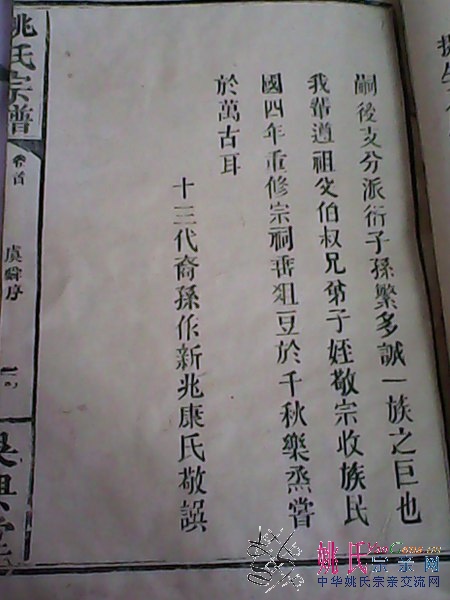 嗣後支分派衍子孫繁多誠一族之巨也
我輩遵祖父伯叔兄弟子姪敬宗收族民
國四年重修宗祠垂俎豆於千秋樂烝嘗
於萬古耳
十三代裔孫作新兆康氏敬譔
姚氏宗譜
卷首
虞舜序
姚氏宗亲网
中华姚氏宗亲交流网